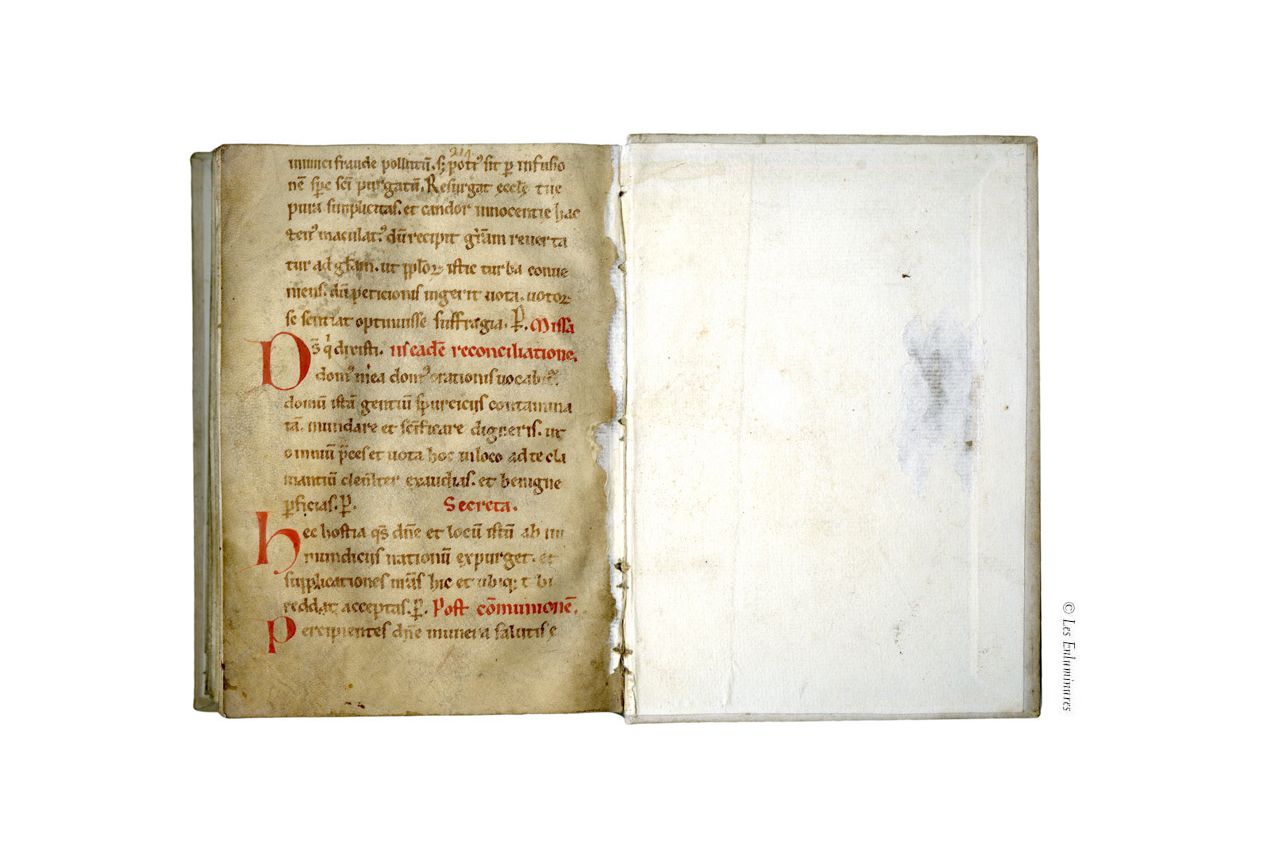 inimici fraude pollutū. sꝫ poti᷒ sit ꝑ infusio
nē spc sci purgatū. Resurgat eccle tue
pura simplicitas. et candor innocentie hac
ten᷒ maculat᷒. dū recipit grām reuerta
tur ad glam. ut pplorꝫ istic turba conue
niens. dū peticionis ingerit uota. uotorꝫ
se sentiat optinuisse suffragia. P. Missa
Ds q dixisti. in eadē reconciliatione.
dom᷒ mea dom᷒ orationis uocabit᷒.
domū istā gentiū spurciciis contamina
tā. mundare et scificare digneris. ut
omniū pces et uota hoc in loco ad te cla
mantiū clenter exaudias. et benigne
ꝑficias. P. Secreta.
Hec hostia qs dne et locū istū ab in
mundiciis nationū expurget. et
supplicationes nras hic et ubiqꝫ t bi
reddat acceptas. P. Post cōmunionē.
Percipientes dne munera salutis e
© Les Enluminures